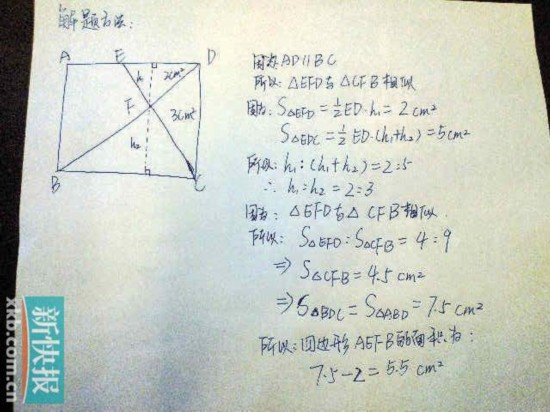 解题方法:
A E D
h₁ 2cm²
F 3cm²
h₂
B C
因为AD∥BC
所以:△EFD与△CFB相似
因为:S△EFD=½ED·h₁=2cm²
S△EDC=½ED·(h₁+h₂)=5cm²
所以:h₁:(h₁+h₂)=2:5
∴ h₁:h₂=2:3
因为:△EFD与△CFB相似.
所以:S△EFD:S△CFB=4:9
⇒ S△CFB=4.5cm²
⇒ S△BDC=S△ABD=7.5cm²
所以:四边形AEFB的面积为:
7.5-2=5.5cm²
新快报
xkb.com.cn